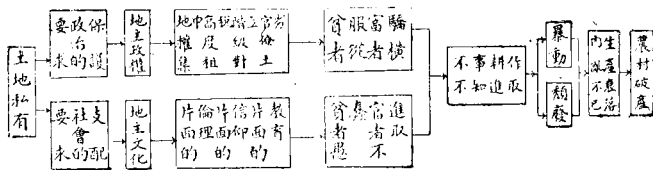 土地私有
要求
政治的
保護
地主政權
地權集
中
高度租
税
階級對
立
官僚土
劣
貧者
服從
富者
驕橫
要求
社會的
支配
地主文化
片面的
倫理
片面的
信仰
片面的
教育
貧者愚
蠢
富者不
進取
不事耕作
不知進取
暴動
頹廢
不已
生產衰落
農村破產